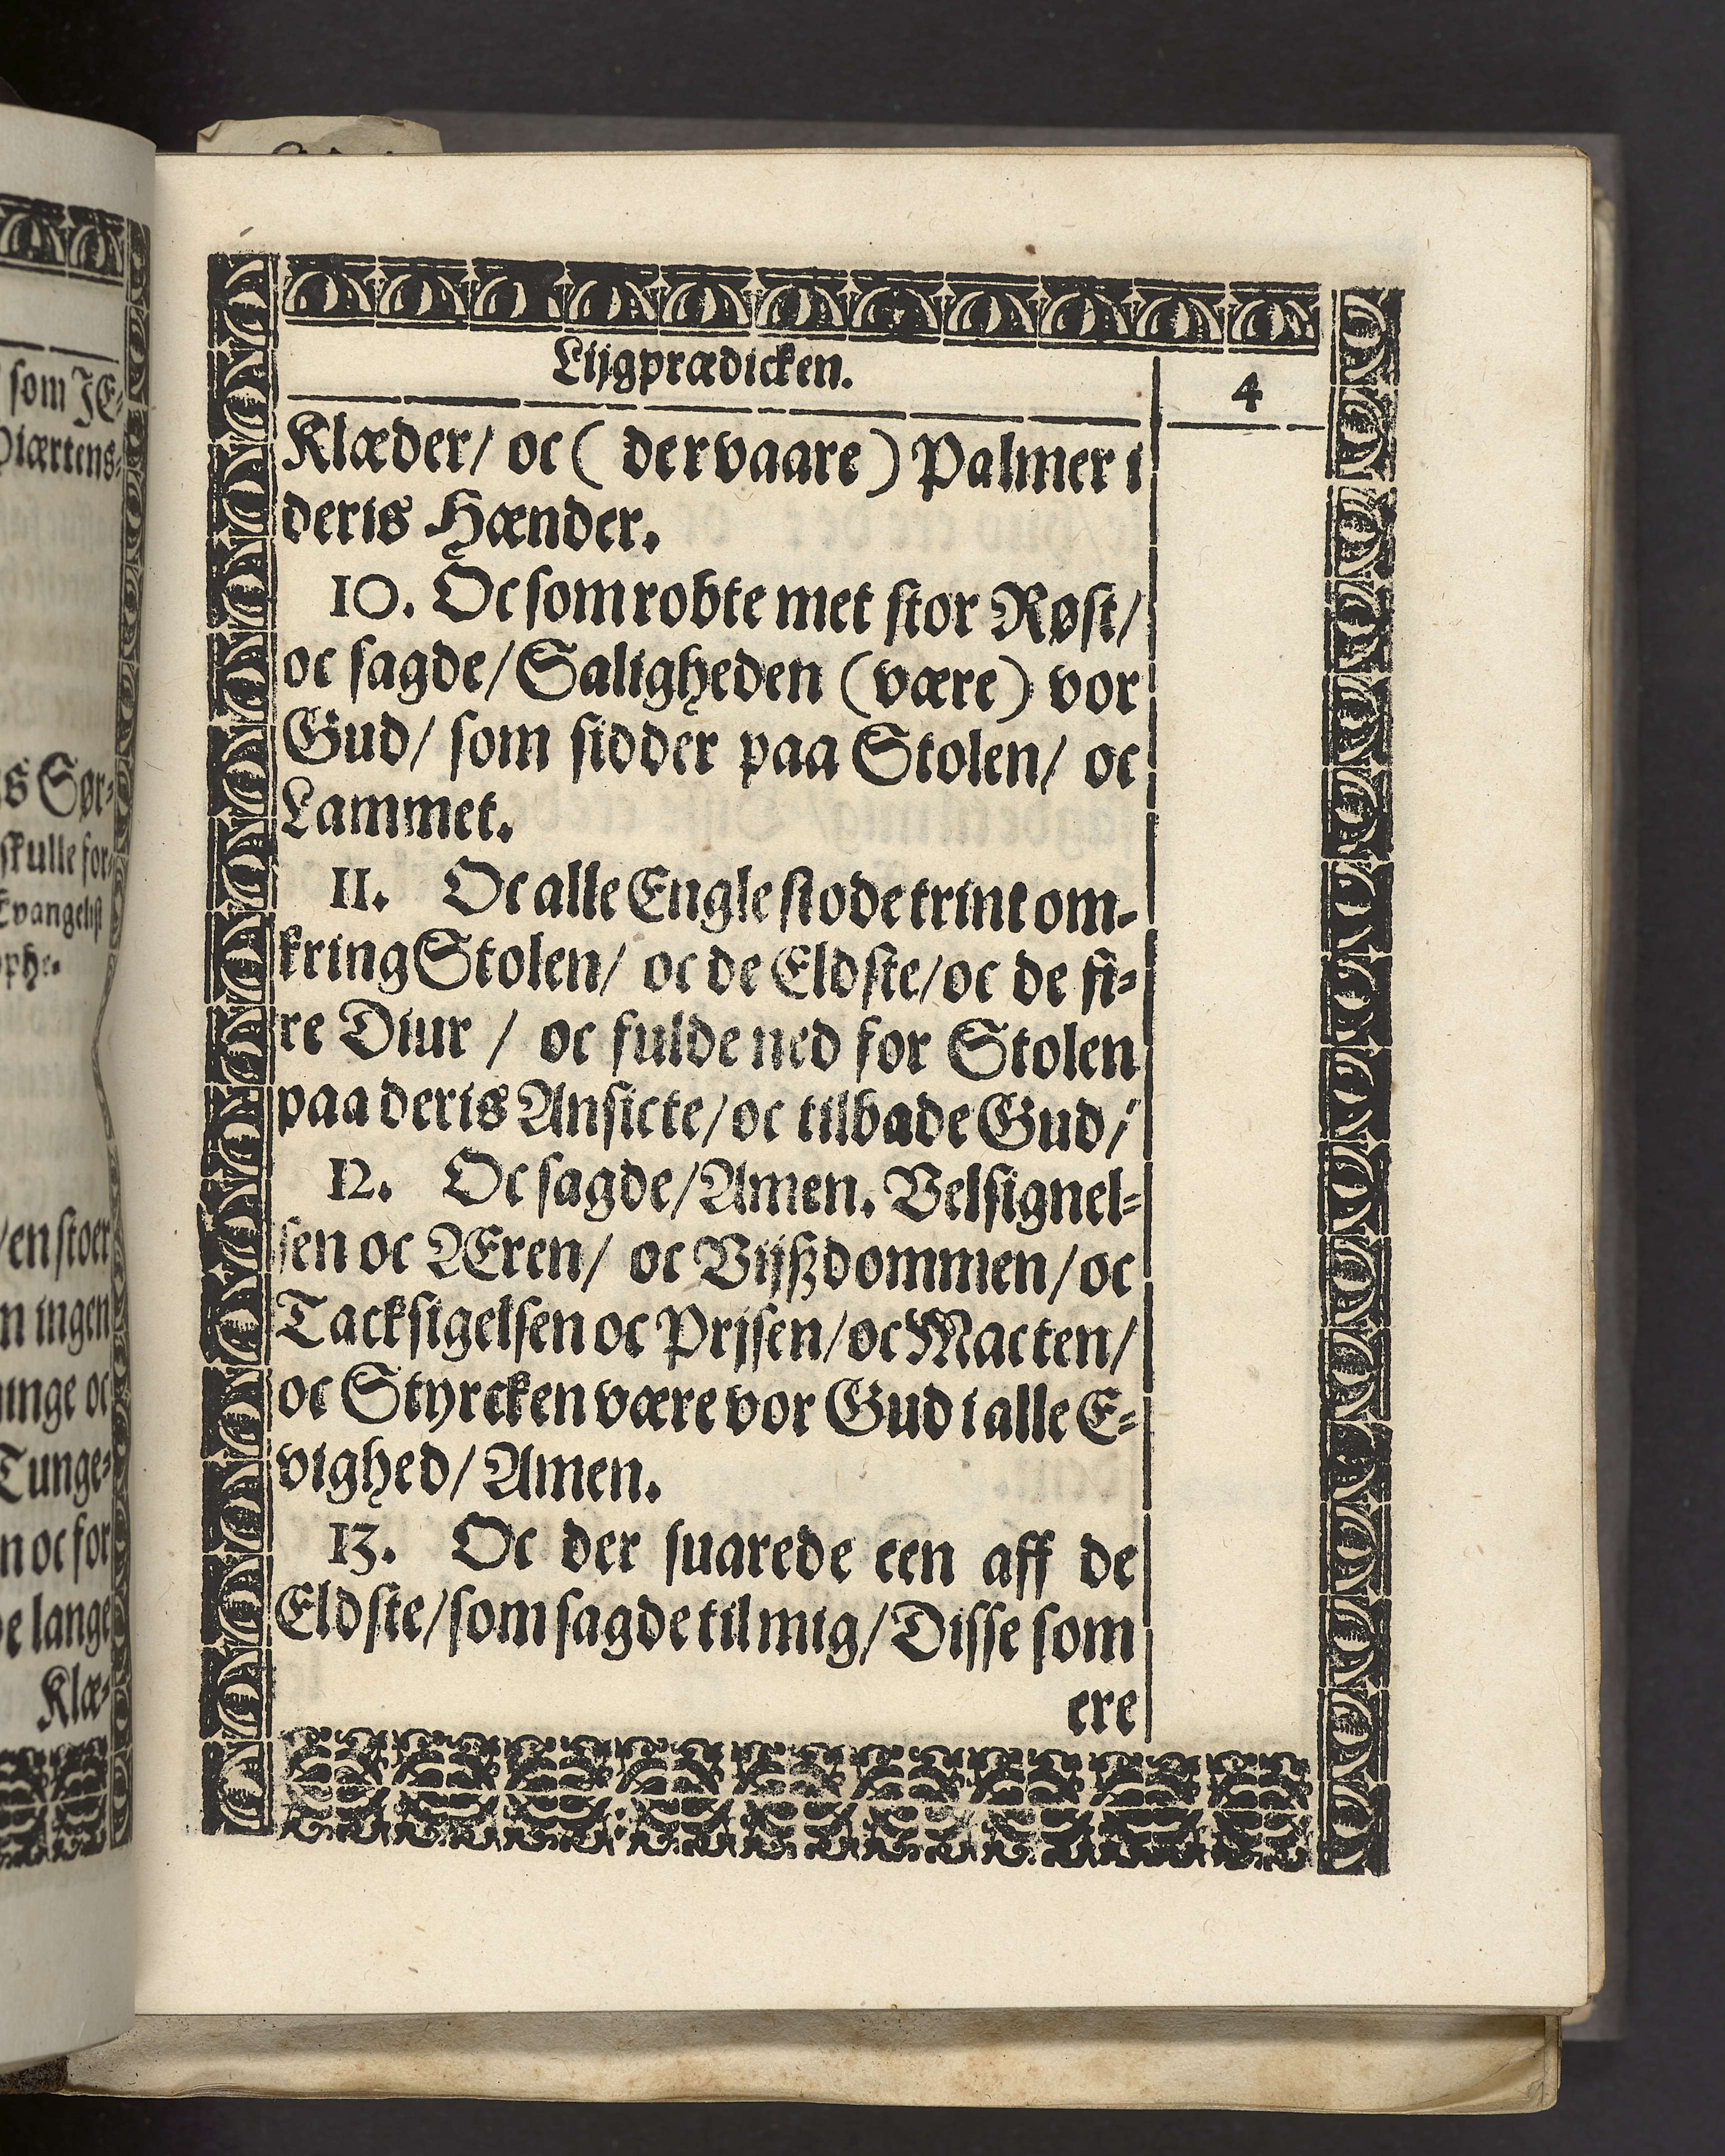 som JE-
Hiærtens-
s Sør-
skulle for-
Evangelist
ophe-
/ en stoer
n ingen
unge oc
Tunge-
n oc for
de lange
Klæ-
Lijgprædicken.
4
Klæder/ oc ( der vaare ) Palmer i
deris Hænder.
10. Oc som robte met stor Røst/
oc sagde/ Saligheden (være) vor
Gud/ som sidder paa Stolen/ oc
Lammet.
11. Oc alle Engle stode trint om-
kring Stolen/ oc de Eldste/ oc de fi-
re Diur / oc fulde ned for Stolen
paa deris Ansicte/ oc tilbade Gud/
12. Oc sagde/ Amen. Velsignel-
sen oc Æren/ oc Vijßdommen/ oc
Tacksigelsen oc Prjsen/ oc Macten/
oc Styrcken være vor Gud i alle E-
vighed/ Amen.
13. Oc der suarede een aff de
Eldste/ som sagde til mig/ Disse som
ere